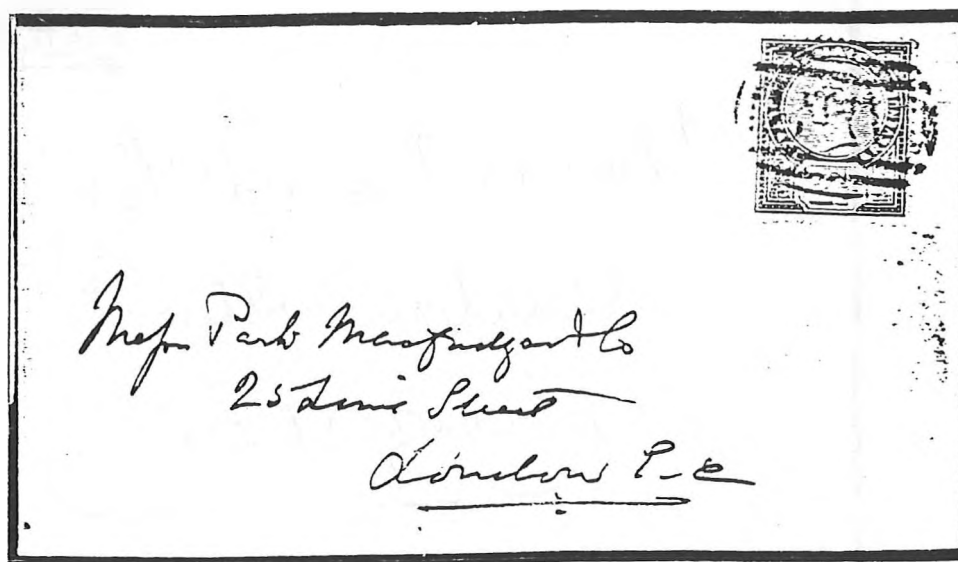 Messrs Park Macfadgen & Co
25 Lime Street
London E.C